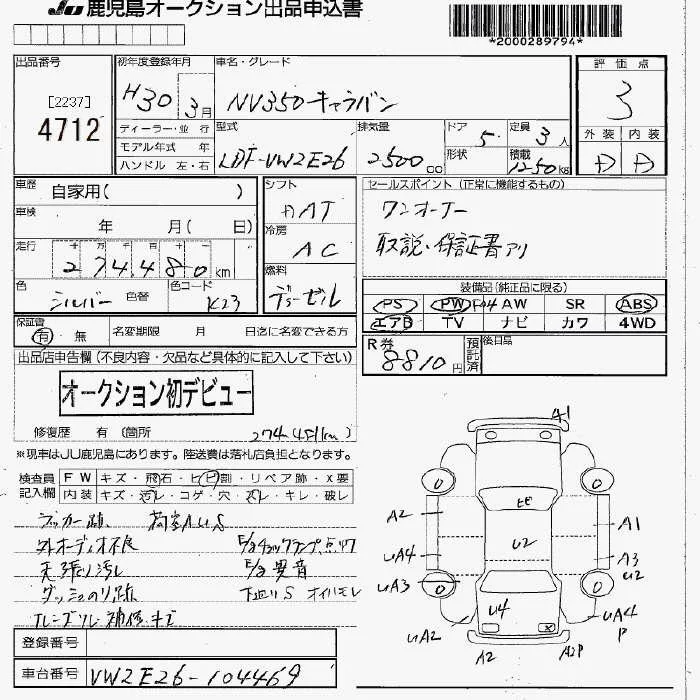 JU 鹿児島オークション出品申込書
*2000289794*
出品番号
[2237]
4712
初年度登録年月
H30 3月
ディーラー・並 行
モデル年式 年
ハンドル 左・右
車名・グレード
NV350キャラバン
型式
LDF-VW2E26
排気量
2500 cc
ドア
5.
形状
定員
3人
積載
1250kg
評価点
3
外装 内装
D D
車歴
自家用( )
車検
年 月( 日)
走行
十 万 千 百 十 一
274480 km
色
シルバー 色替
色コード
K23
シフト
DAT
冷房
AC
燃料
ディーゼル
セールスポイント (正常に機能するもの)
ワンオーナー
取説・保証書アリ
装備品 (純正品に限る)
PS PW AW SR ABS
エアB TV ナビ カワ 4WD
保証書
有 無
名変期限 月 日迄に名変できる方
R券
8810円
預託済
後日品
出品店申告欄 (不良内容・欠品など具体的に記入して下さい)
オークション初デビュー
修復歴 有 (箇所
274,451km)
※現車はJU鹿児島にあります。陸送費は落札店負担となります。
検査員
記入欄
FW キズ・飛石・ヒビ割・リペア跡・X要
内装 キズ・汚レ・コゲ・穴・スレ・キレ・破レ
ラッカー跡 荷室AUS
外オーディオ不良 E/gチェックランプ点灯
天張り汚し E/g異音
ダッシュのり跡 下廻りS オイルモレ
登録番号
車台番号 VW2E26-104469
A1
0
0
A2
UA4
UA3
0
UA2
U2
U4
A1
A3
U2
0
UA4
P
A2
A2P
X